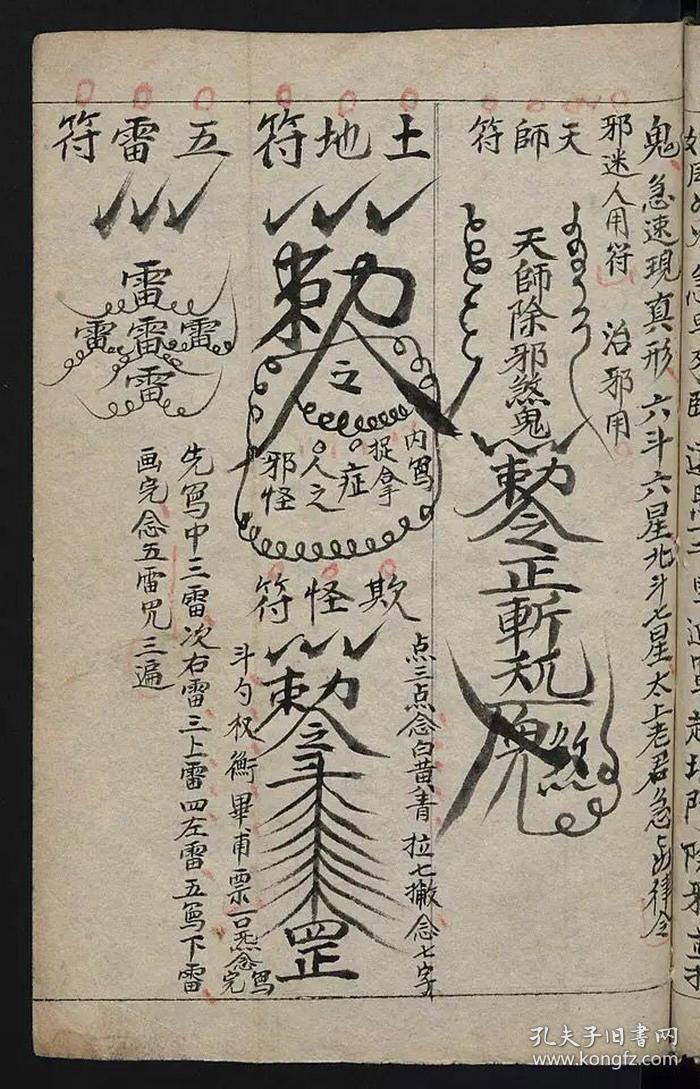 鬼急速現真形六斗六星北斗七星太上老君急如律令
邪迷人用符 治邪用
天師符
天師除邪煞鬼
勅令正斬
煞
土地符
勅令
内寫
捉拿
症
人之
邪怪
欺怪符
点三点念白黄青 拉七撇念七字
勅令斗罡
斗勺权衡畢甫票
寫
念完
五雷符
雷
雷雷雷
雷
先寫中三雷次右雷三上雷四左雷五寫下雷
画完念五雷咒三遍
孔夫子旧书网
www.kongfz.com